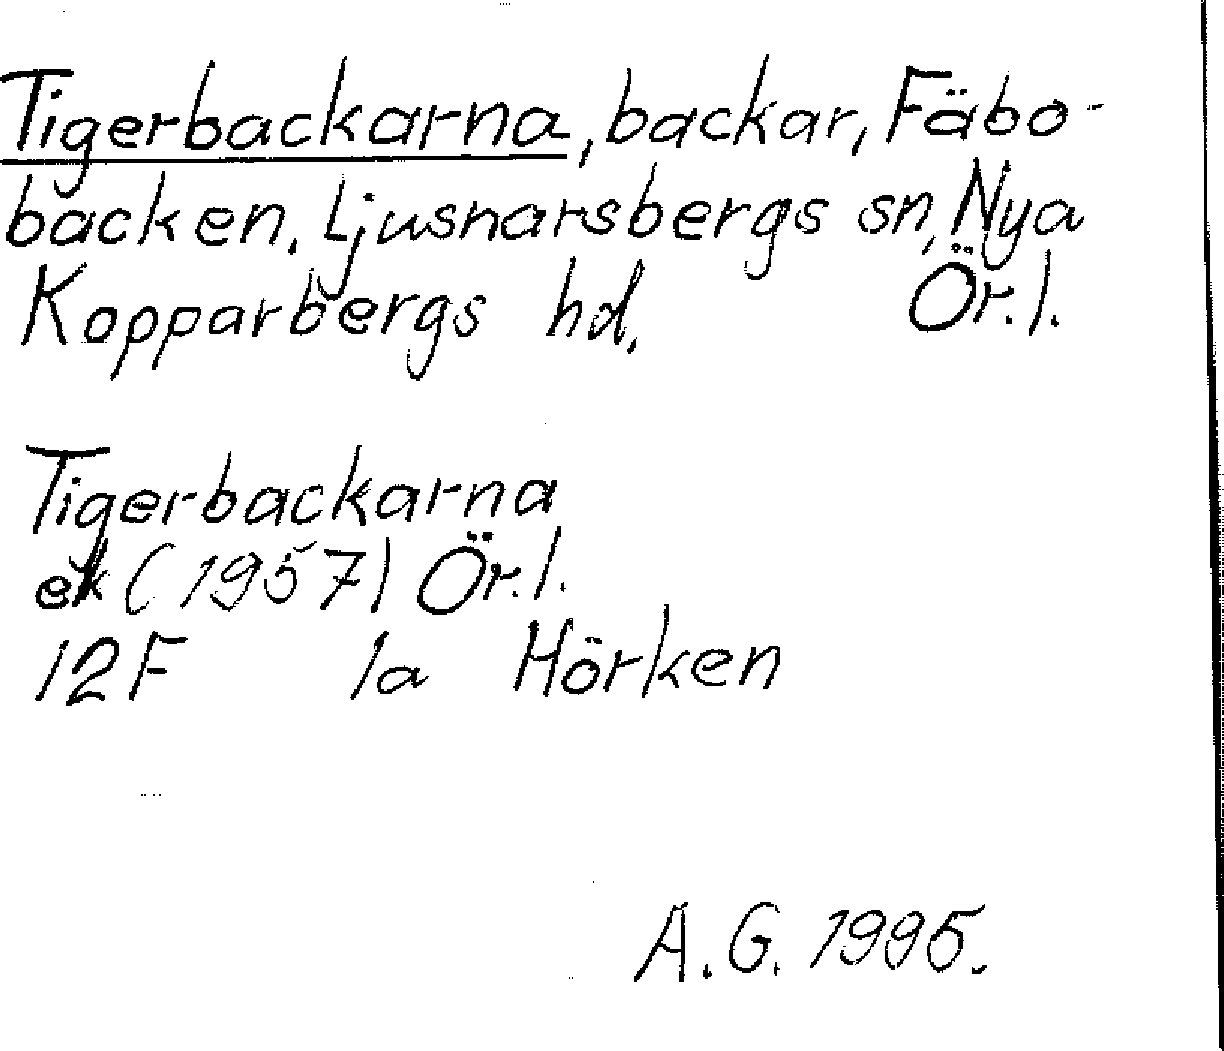 Tigerbackarna, backar, Fäbo-
backen, Ljusnarsbergs sn, Nya
Kopparbergs hd, Ör. l.
Tigerbackarna
ek (1957) Ör. l.
12F 1a Hörken
A. G. 1995.